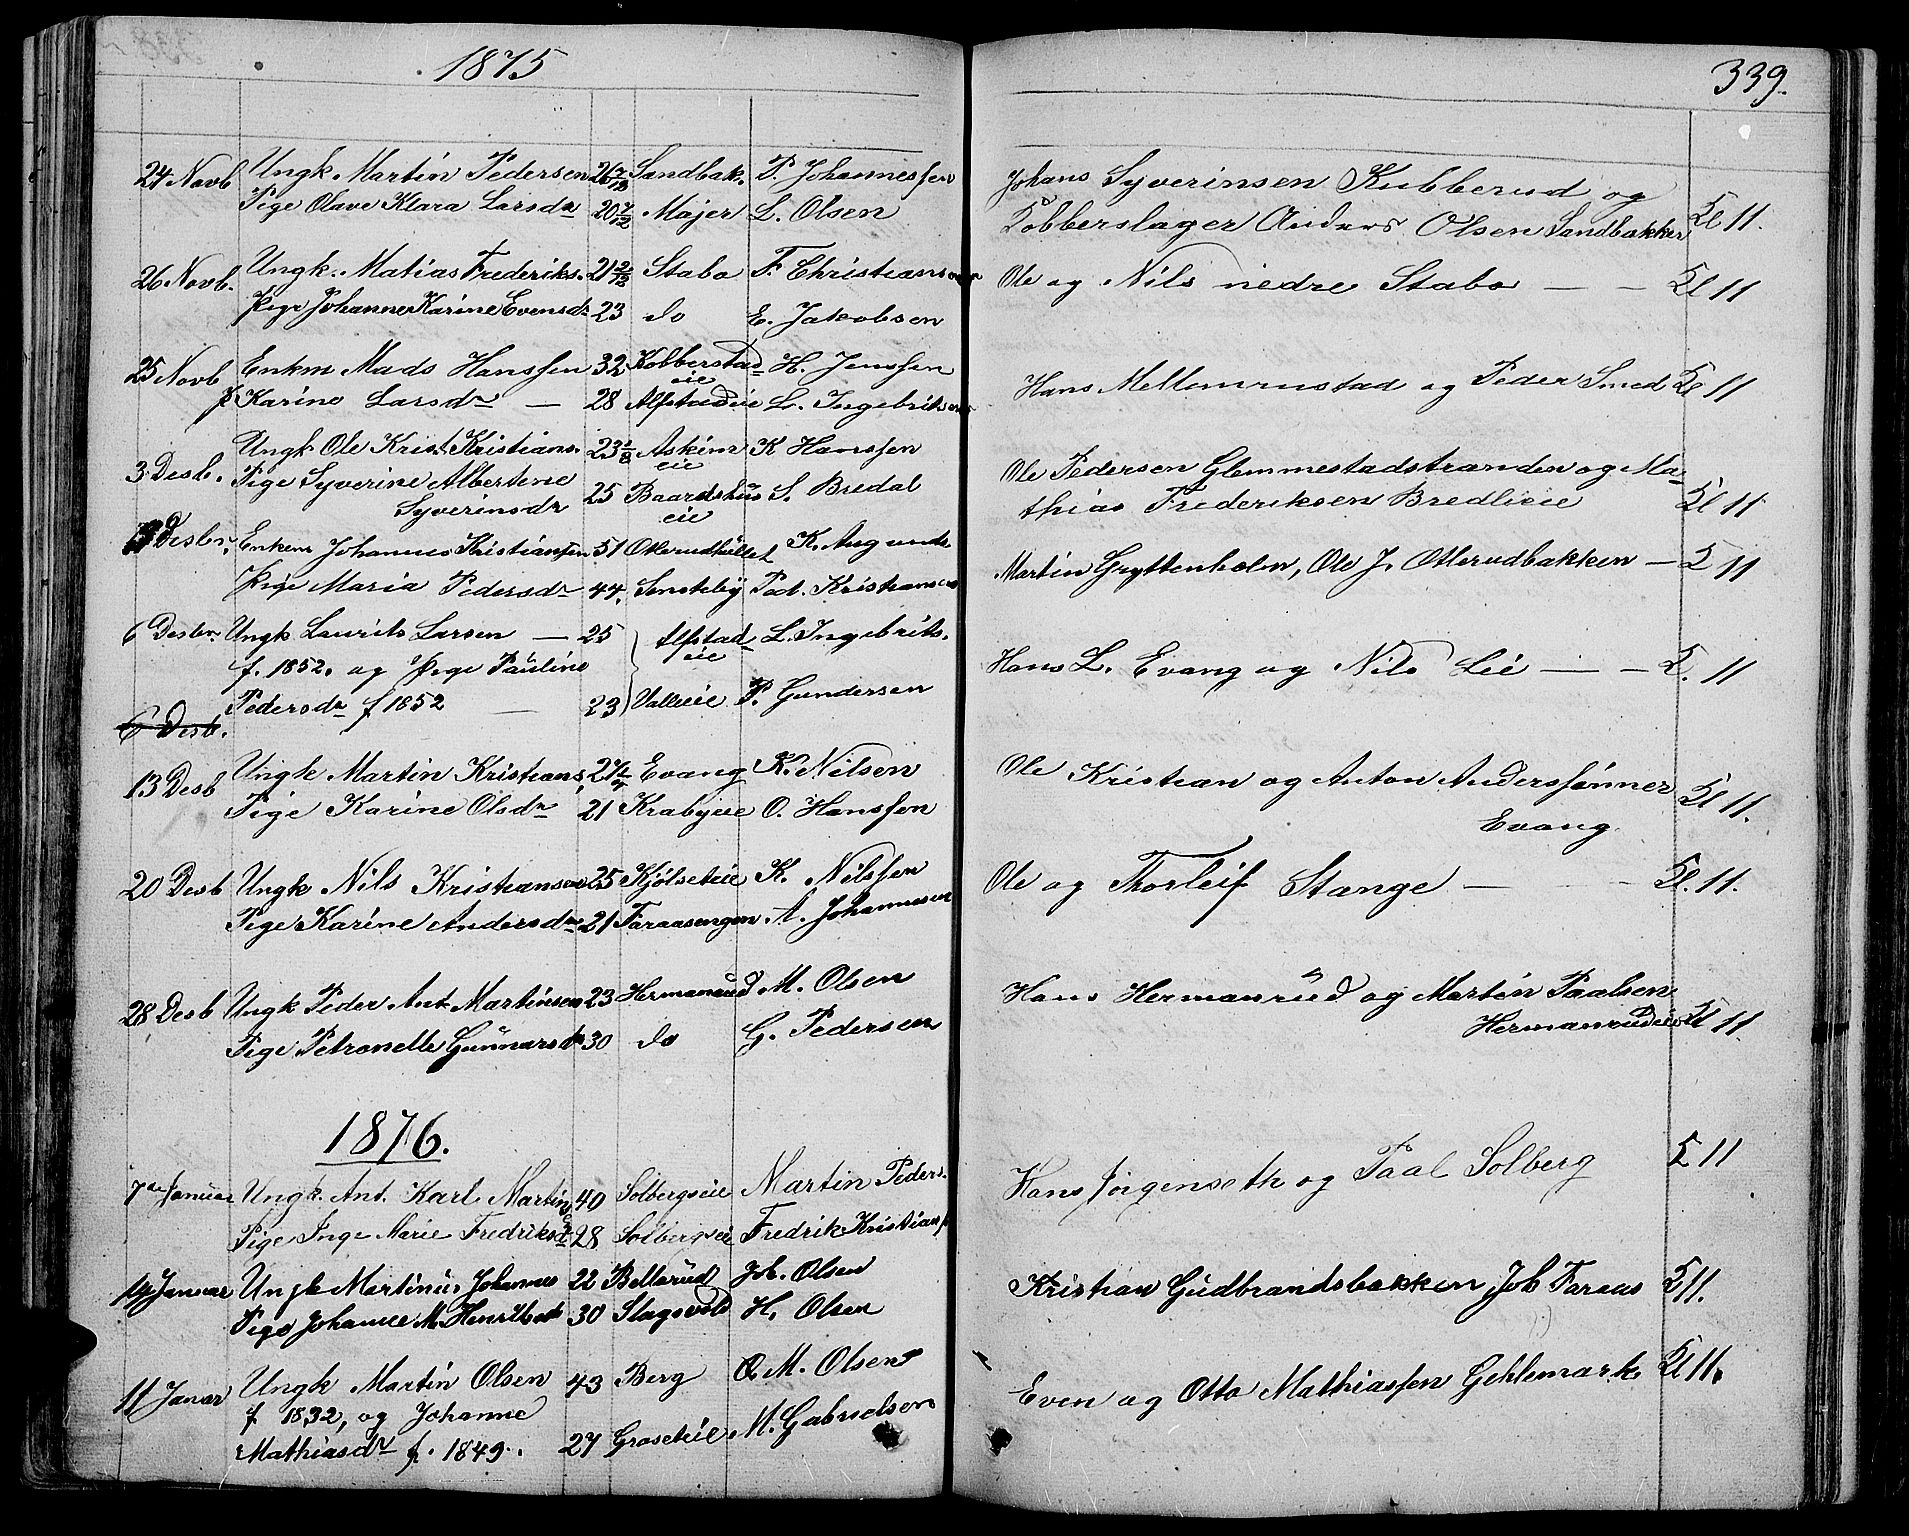 1875
24 Novb Ungk. Martin Pedersen 26 7/12 Sandbak. P. Johannessen
Pige Olave Klara Larsdr 20 7/12 Majer L. Olsen
26 Novb. Ungk. Matias Frederiks. 21 2/12 Stabo F. Christiansen
Pige Johanne Karine Evensdr 23 do E. Jakobsen
25 Novb Enkm Mads Hanssen 32 Kobberstad eie H. Jenssen
P Karine Larsdr — 28 Alfstadeie L. Ingebriksen
3 Desb. Ungk Ole Krist. Kristians. 23 Askim eie K Hanssen
Pige Syverine Albertine
Syverinsdr 25 Baardshus eie S. Bredal
Desbr. Enkem Johannes Kristiansen 51 Otterudhullet K. Aug
Pige Maria Pedersdr 44. Sensteby Ped. Kristiansen
6 Desbr. Ungk Laurits Larsen — 25 Alfstad eie L. Ingebrits.
f. 1852. og Pige Pauline
Pedersdr f 1852 — 23 Valleeie P. Gundersen
6 Desb.
13 Desb Ungk Martin Kristians. 24 Evang K. Nilsen
Pige Karine Olsdr 21 Krabyeie O. Hanssen
20 Desb Ungk Nils Kristiansen 25 Kjölseteie K. Nilssen
Pige Karine Andersdr. 21 Faraasengen A. Johannesen
28 Desb Ungk Peder Ant. Martinsen 23 Hermanrud M. Olsen
Pige Petronelle Gunnarsdr 30 do G. Pedersen
1876.
7de Januar Ungk. Ant. Karl Martins 40 Solbergseie Martin Peders.
Pige Inge Marie Fredriksdr 28 Solbergseie Fredrik Kristians
14 Januar Ungk Martinus Johannes 22 Bellerud Joh. Olsen
Pige Johanne M. Henriksdr 30 Slagsvold H. Olsen
11 Januar Ungk Martin Olsen 43 Berg O M. Olsen
f. 1832, og Johanne
Mathiasdr f. 1849. 27 Graseteie M. Gabrielsen
339.
Johans Syverinsen Kubberud og
Kobberslager Anders Olsen Sandbakken Kl 11.
Ole og Nils nedre Stabo — — Kl 11
Hans Mellemrustad og Peder Smed Kl 11
Ole Pedersen Glemmestadstranden og Ma-
thias Frederiksen Bredlieie Kl 11
Martin Gryttenholm, Ole J. Otterudbakken — K 11
Hans L. Evang og Nils Lie — — K. 11
Ole Kristian og Anton Anderssønner
Evang Kl 11.
Ole og Thorleif Stange — — Kl. 11.
Hans Hermanrud og Martin Paalsen
Hermanrudeie Kl 11.
Hans Jörgenseth og Paal Solberg K 11
Kristian Gudbrandsbakken, Joh Faraas K 11.
Even og Otto Mathiassen Gehlemark Kl 11.